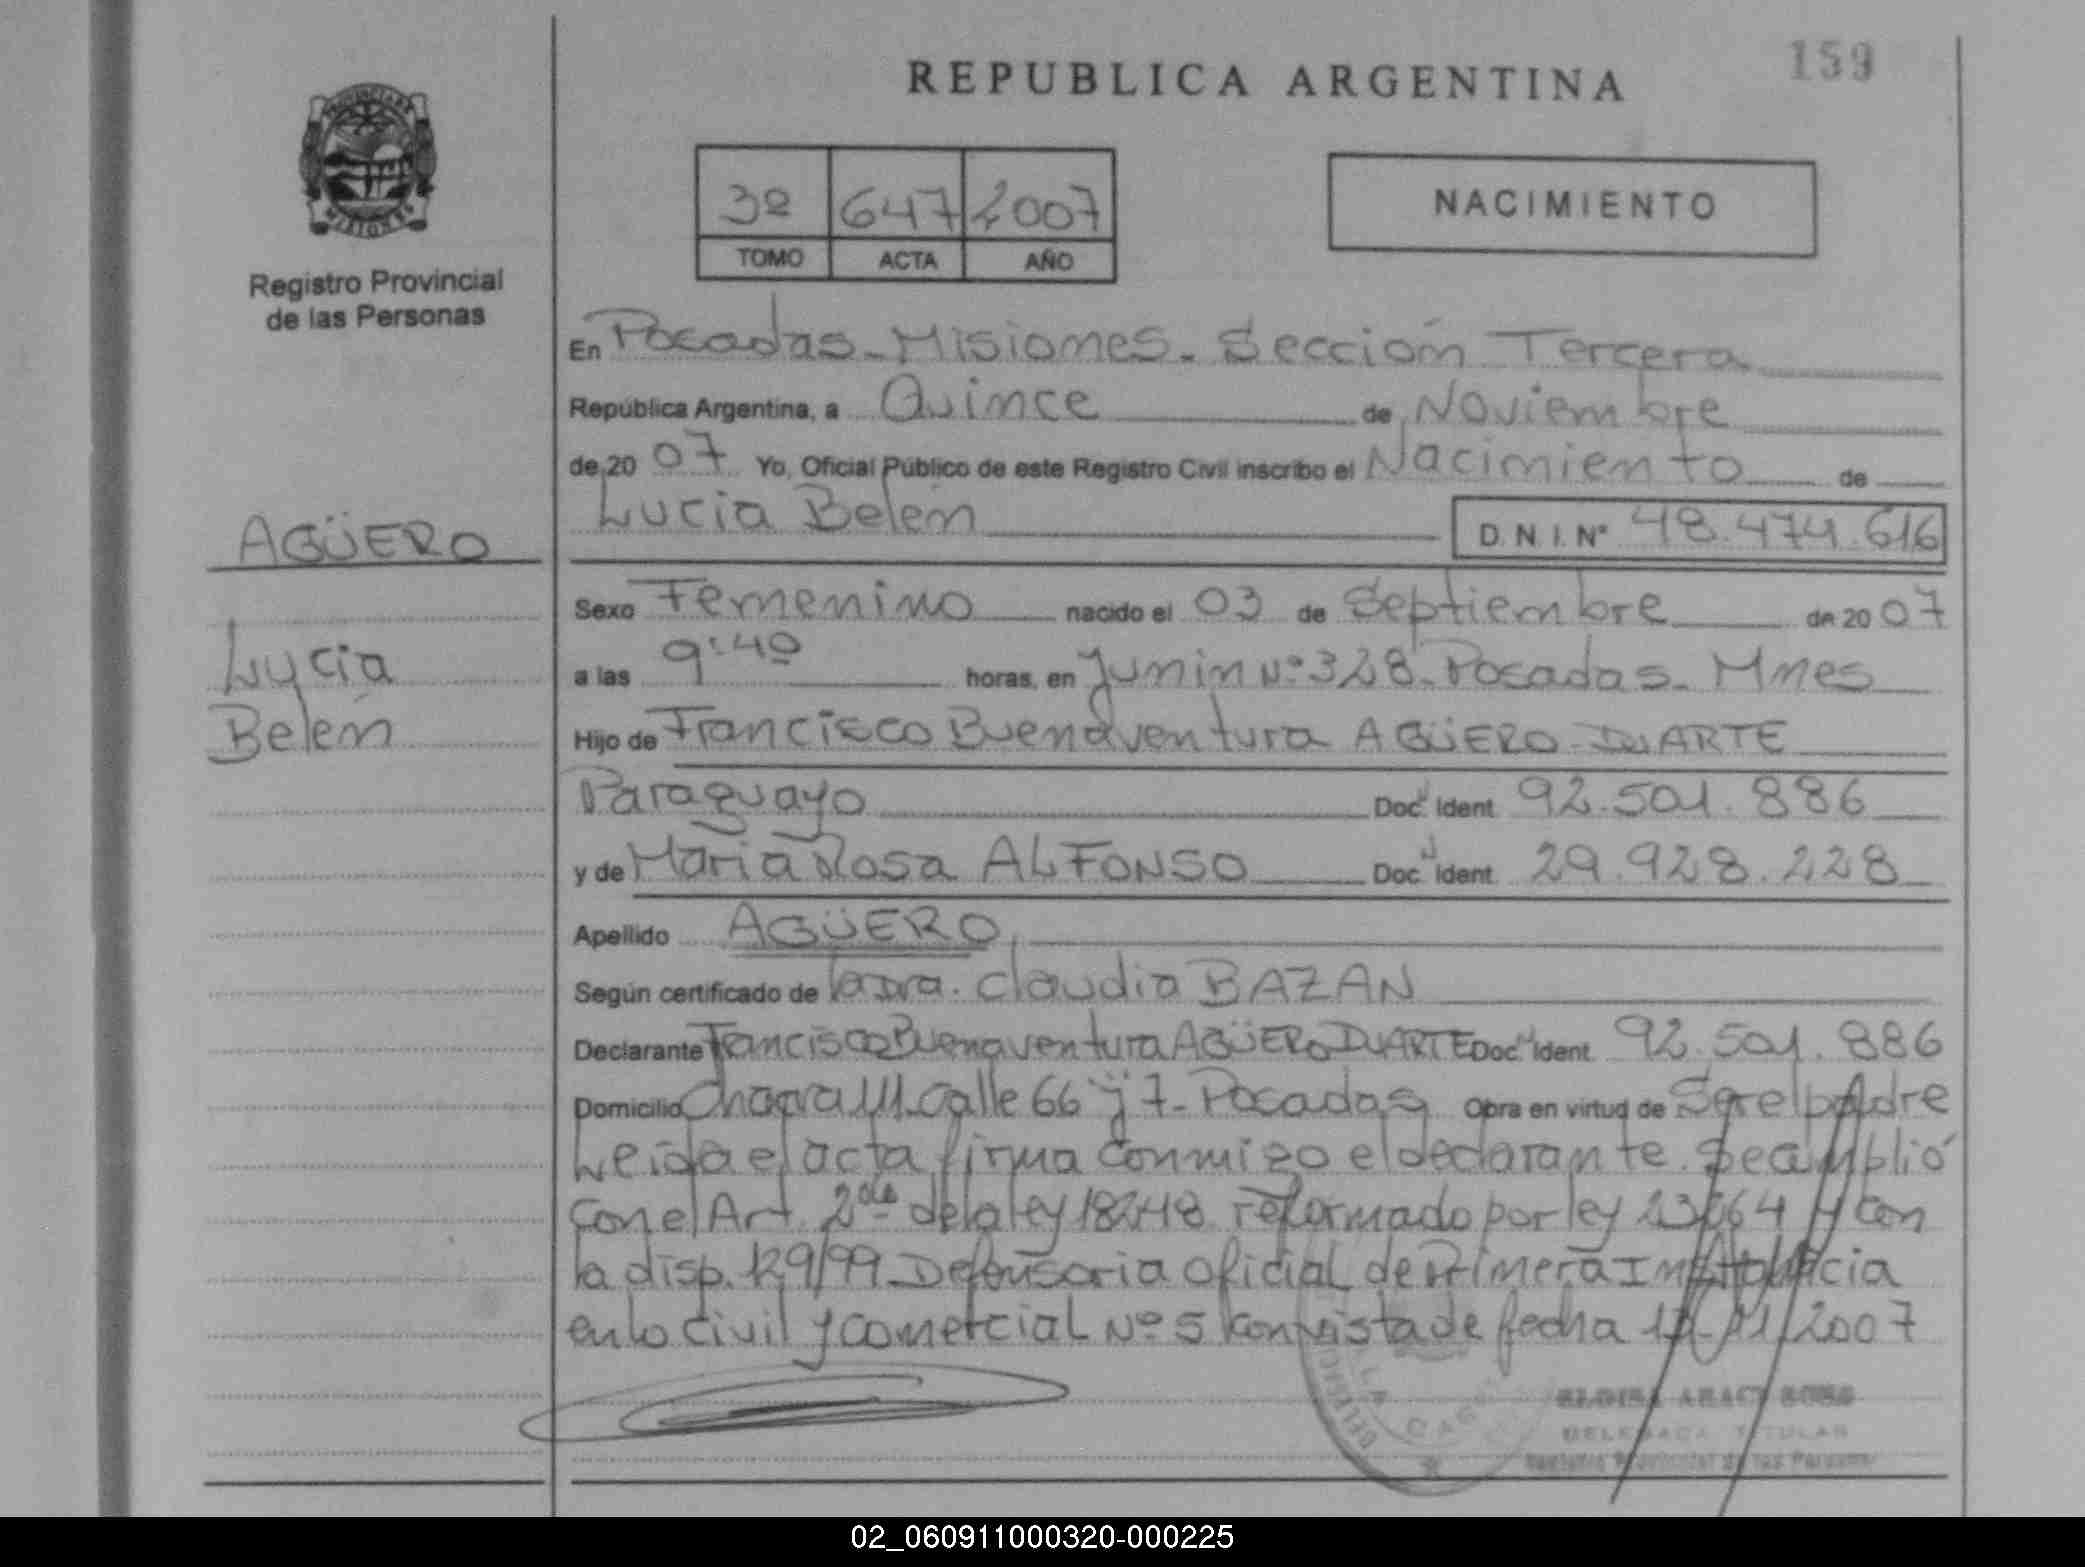 159
REPUBLICA ARGENTINA
3º 647 2007
TOMO ACTA AÑO
NACIMIENTO
Registro Provincial
de las Personas
AGÜERO
Lucia
Belén
En Posadas - Misiones - Sección Tercera
República Argentina, a Quince de Noviembre
de 20 07 Yo, Oficial Público de este Registro Civil inscribo el Nacimiento de
Lucia Belén D.N.I. Nº 48.474.616
Sexo Femenino nacido el 03 de Septiembre de 20 07
a las 9:40 horas, en Junin Nº 328 - Posadas - Mnes
Hijo de Francisco Buenaventura AGÜERO DUARTE
Paraguayo Doc. Ident. 92.501.886
y de Maria Rosa ALFONSO Doc. Ident. 29.928.228
Apellido AGÜERO
Según certificado de la Dra. Claudia BAZAN
Declarante Francisco Buenaventura AGÜERO DUARTE Doc. Ident. 92.501.886
Domicilio Chacra 111 - Calle 66 y 7 - Posadas Obra en virtud de Ser el padre
Leida el acta firma conmigo el declarante. Se cumplió
con el Art. 2do de la ley 18248 reformado por ley 23264 y con
la disp. 129/99 Defensoria oficial de Primera Instancia
en lo civil y comercial Nº 5 con vista de fecha /11/2007
DELEGADA TITULAR
Registro Provincial de las Personas
02_060911000320-000225